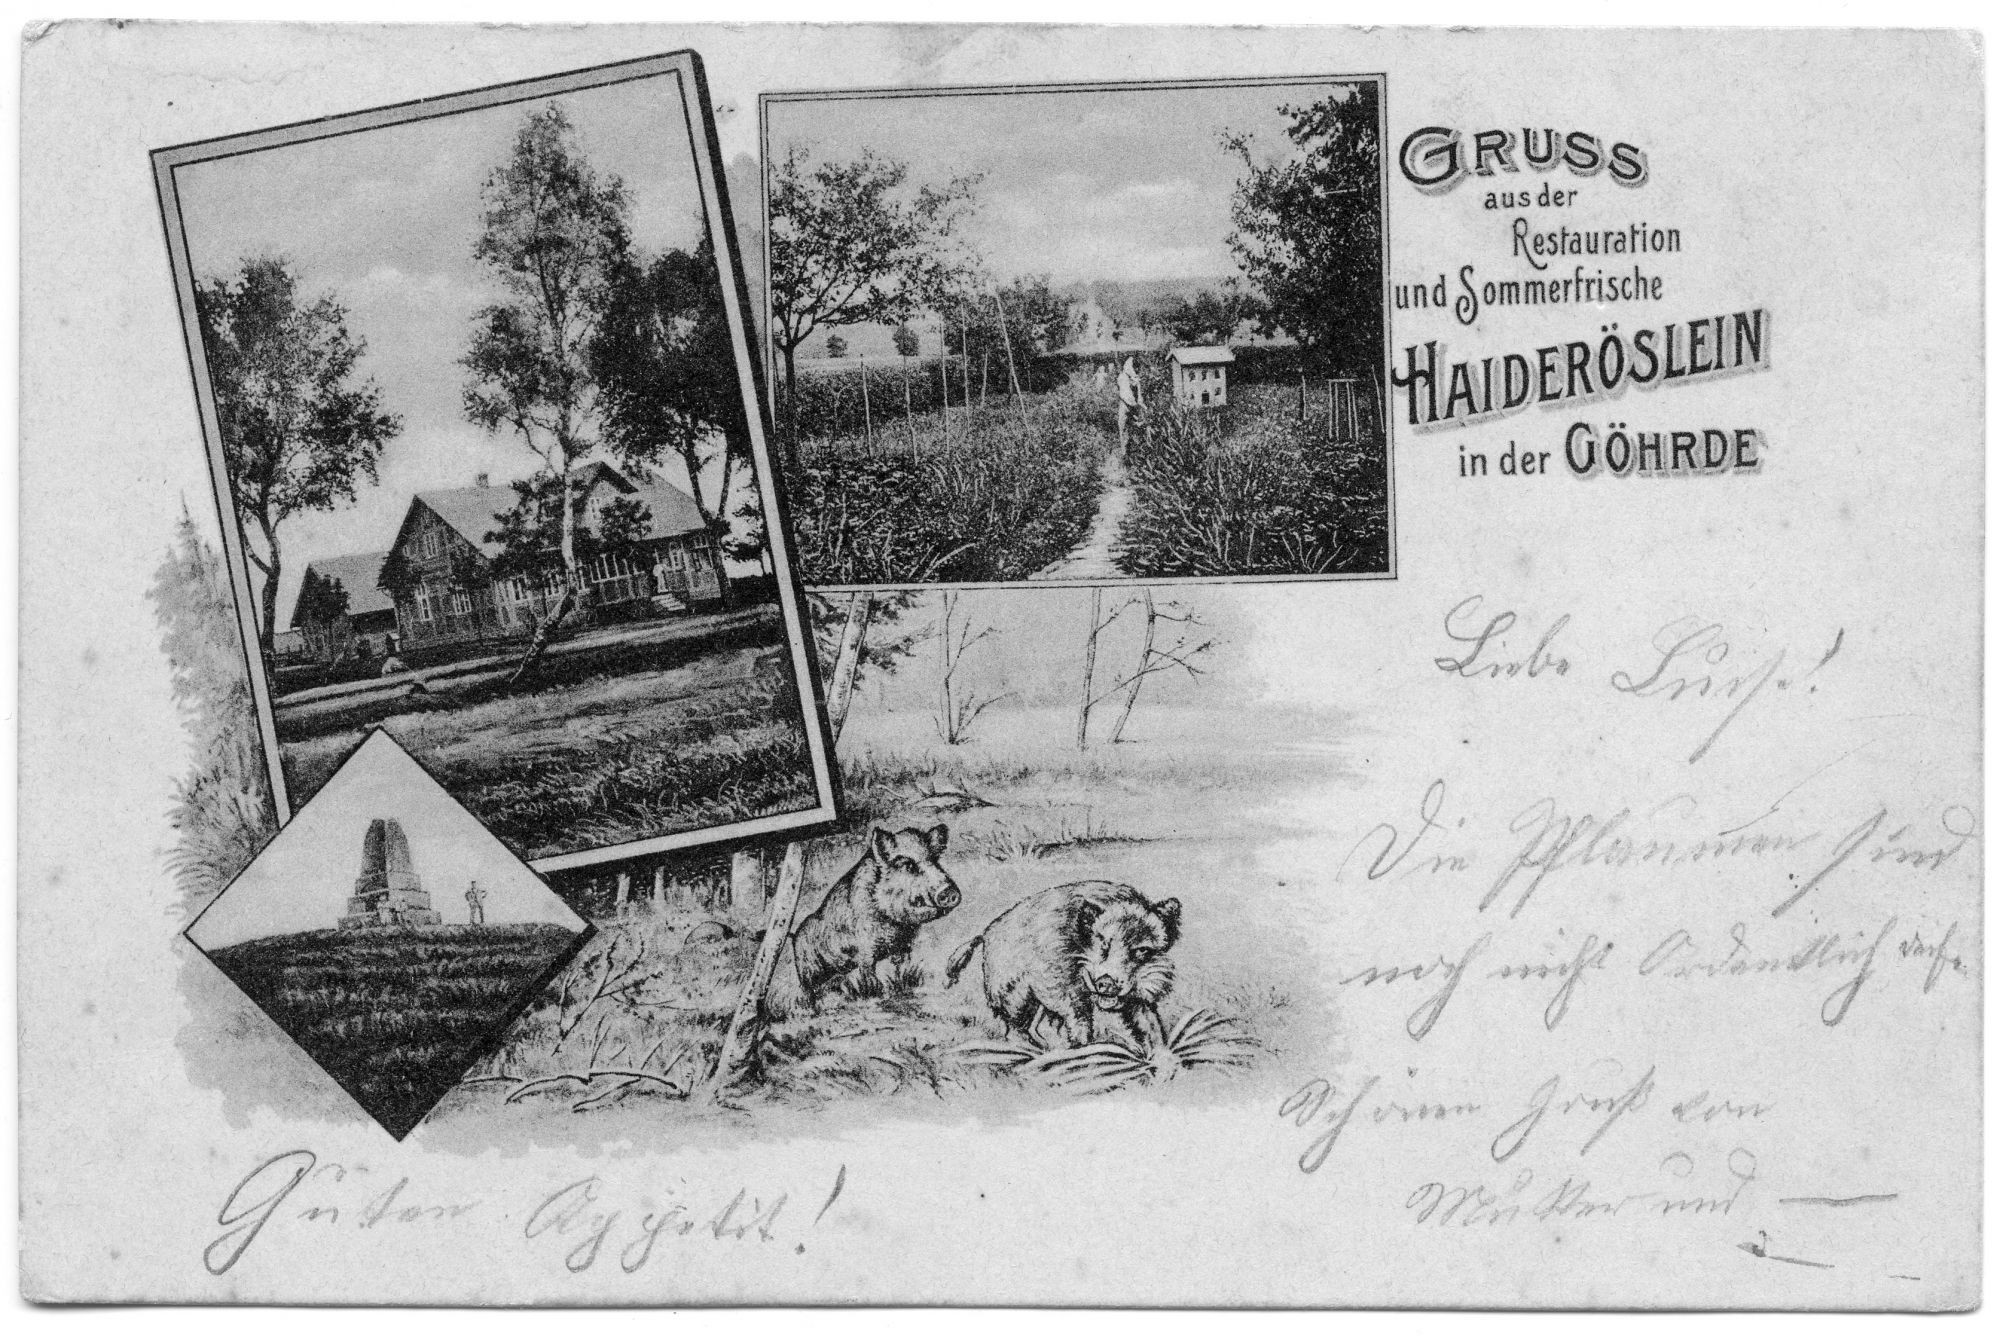 GRUSS
aus der
Restauration
und Sommerfrische
HAIDERÖSLEIN
in der GÖHRDE
Liebe Luise!
Die Pflaumen sind
noch nicht Ordentlich reife
Schönen Gruß von
Mutter und
Guten Appetit!